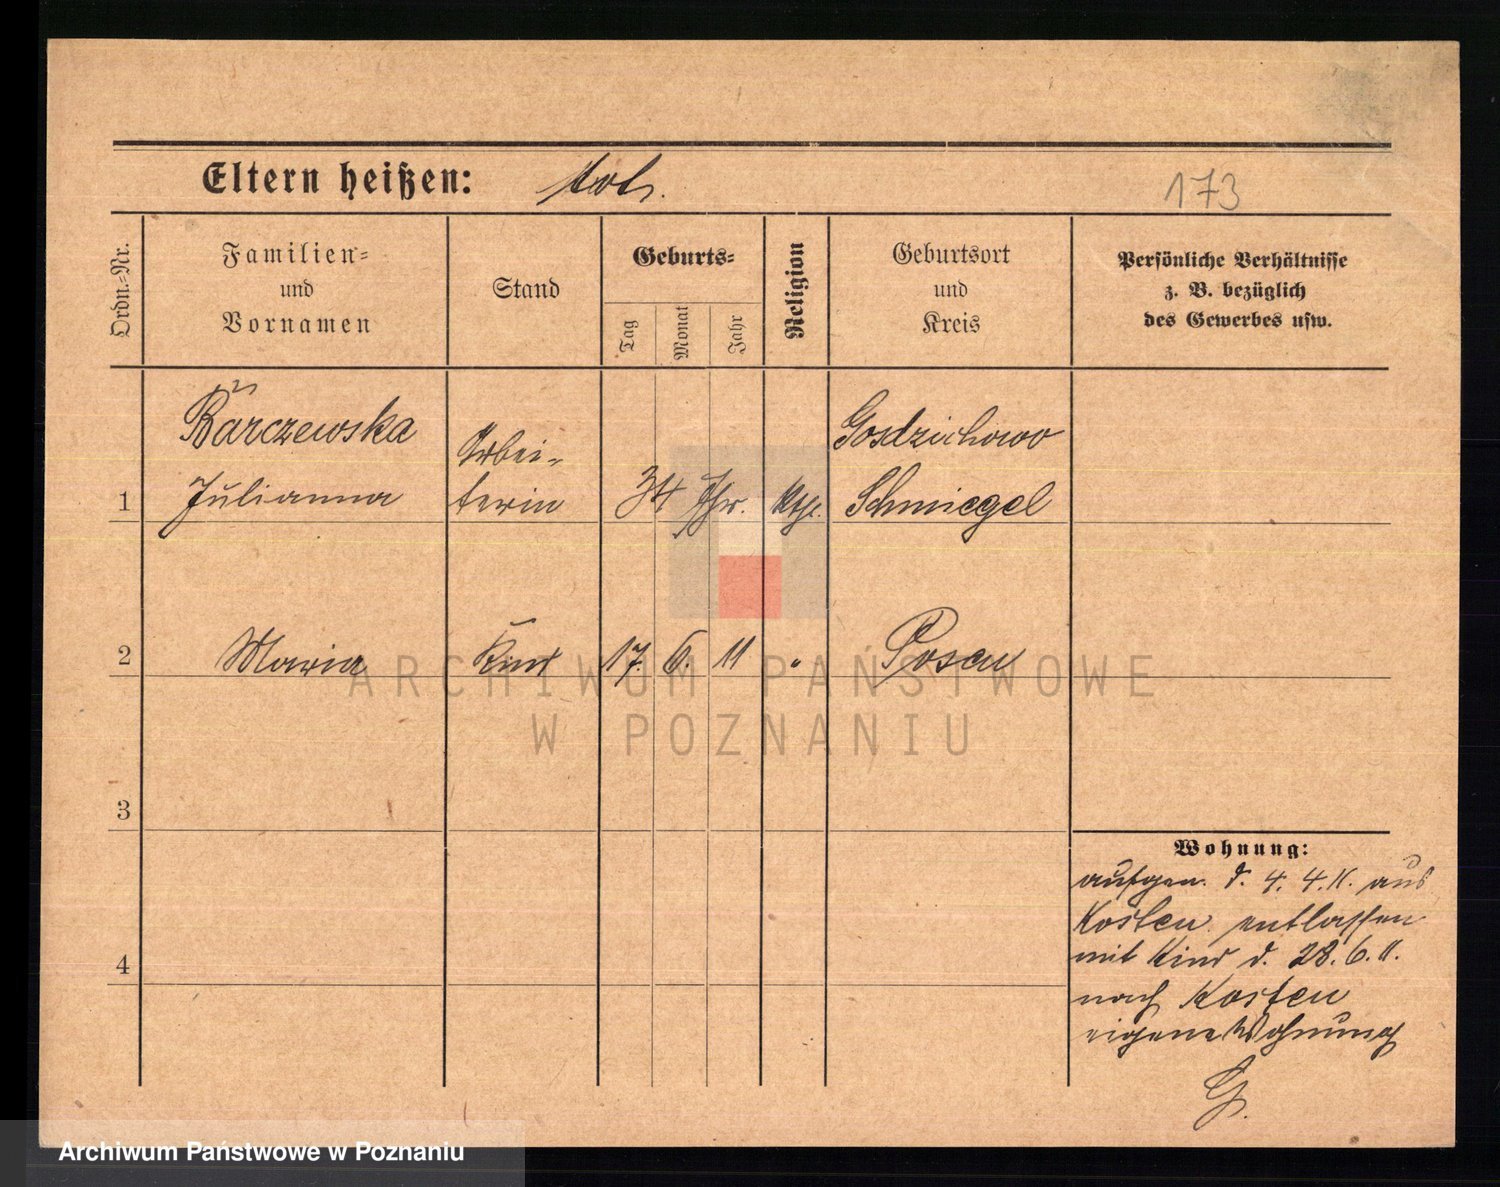 Eltern heißen:
173
Ordn.-Nr.
Familien-
und
Vornamen
Stand
Geburts-
Tag
Monat
Jahr
Religion
Geburtsort
und
Kreis
Persönliche Verhältnisse
z. B. bezüglich
des Gewerbes usw.
Barczewska
Arbei-
Gosdzichowo
1
Julianna
terin
34 Jhr.
Kth.
Schmiegel
2
Maria
Kind
17.
6.
11
"
Posen
3
4
Wohnung:
aufgen. d. 4. 4. 11. aus
Kosten entlassen
mit Kind d. 28. 6. 11.
nach Kosten
eigene Wohnung
G.
ARCHIWUM PAŃSTWOWE
W POZNANIU
Archiwum Państwowe w Poznaniu